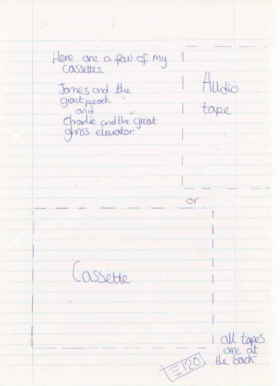 Here are a few of my
cassettes
James and the
giant peach
and
Charlie and the great
glass elevator.
Audio
tape
or
Cassette
all tapes
are at
the back